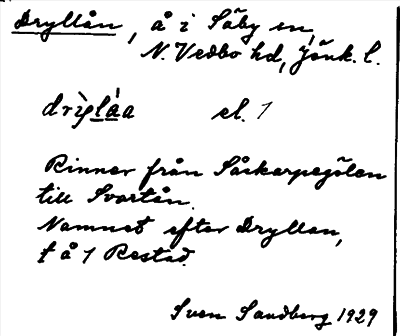 Dryllån, å i Säby sn,
N. Vedbo hd, Jönk. l.
drỳlàa el. 1
Rinner från Såskarpegölen
till Svartån.
Namnet efter Dryllan,
t å 1 Restad.
Sven Sandberg 1929